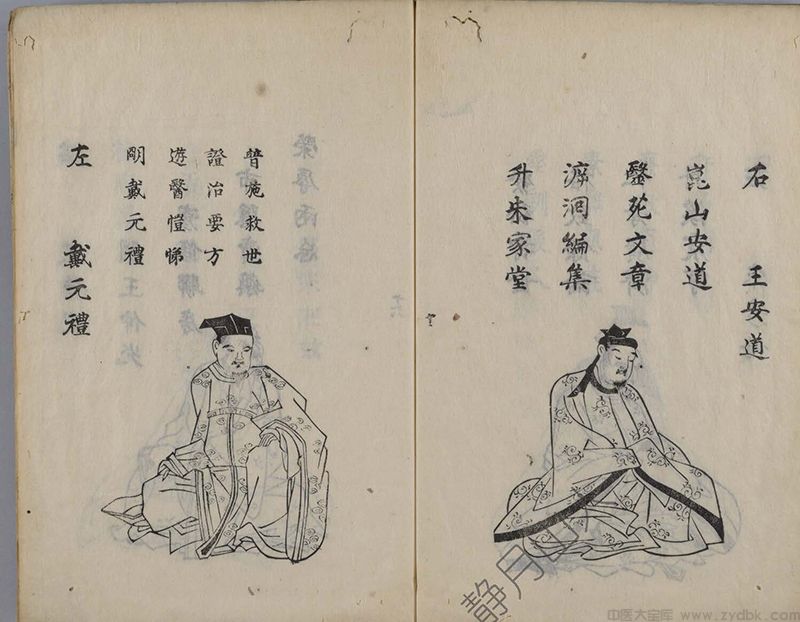 右 王安道
崑山安道
毉苑文章
泝洄編集
升朱家堂
左 戴元禮
明戴元禮
遊醫愷悌
證治要方
普施救世
静月
中医大宝库 www.zydbk.com